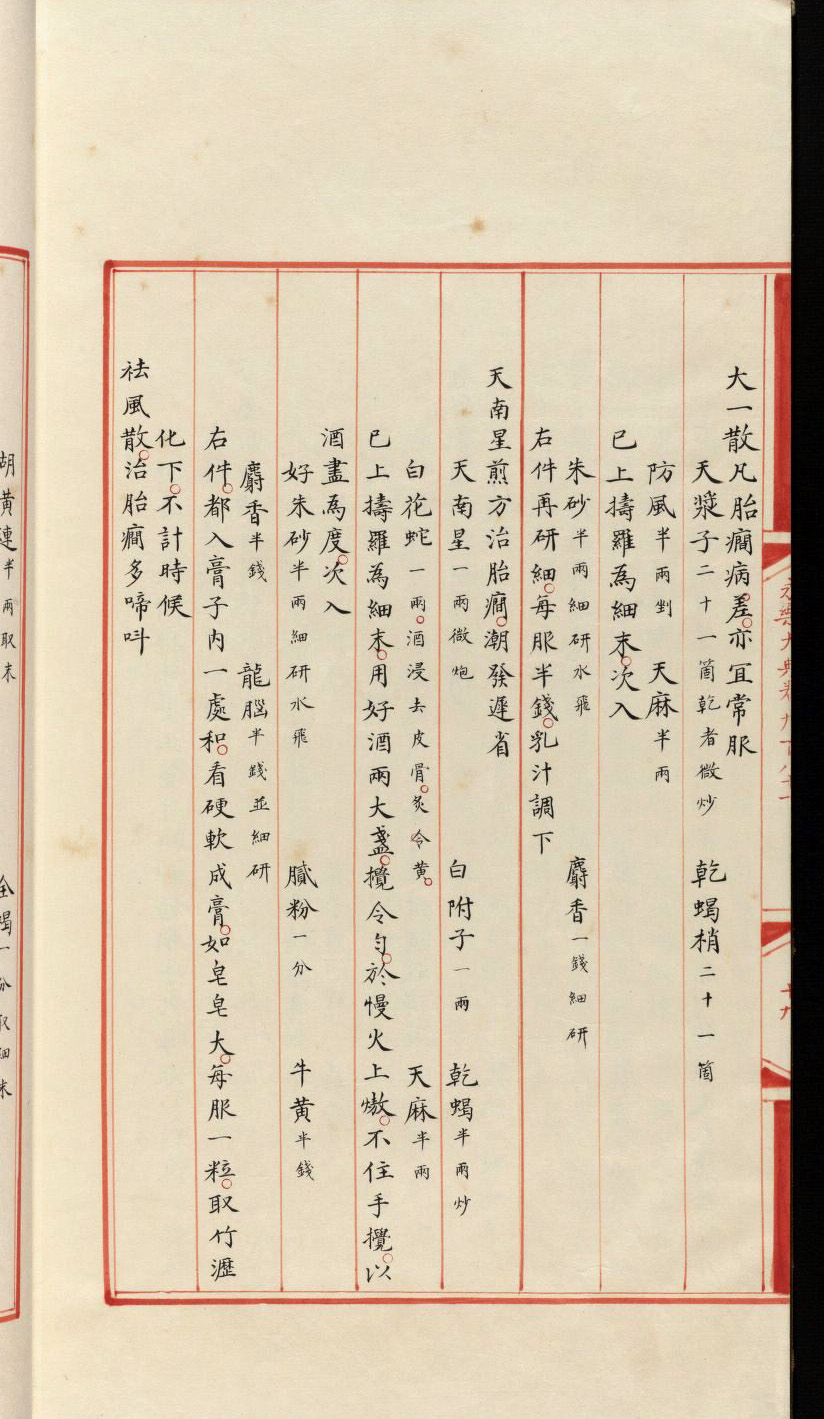 大一散凡胎癇病差亦宜常服
天漿子二十一箇乾者微炒 乾蝎梢二十一箇
防風半兩剉 天麻半兩
已上擣羅為細末次入
朱砂半兩細研水飛 麝香一錢細研
右件再研細每服半錢乳汁調下
天南星煎方治胎癇潮發遲省
天南星一兩微炮 白附子一兩 乾蝎半兩炒
白花蛇一兩酒浸去皮骨炙令黃 天麻半兩
已上擣羅為細末用好酒兩大盞攪令勻於慢火上熬不住手攪以
酒盡為度次入
好朱砂半兩細研水飛 膩粉一分 牛黃半錢
麝香半錢 龍腦半錢並細研
右件都入膏子內一處和看硬軟成膏如皂皂大每服一粒取竹瀝
化下不計時候
祛風散治胎癇多啼呌
胡黃連半兩取末 全蝎一分取細末
永樂大典卷九百八十一
十九